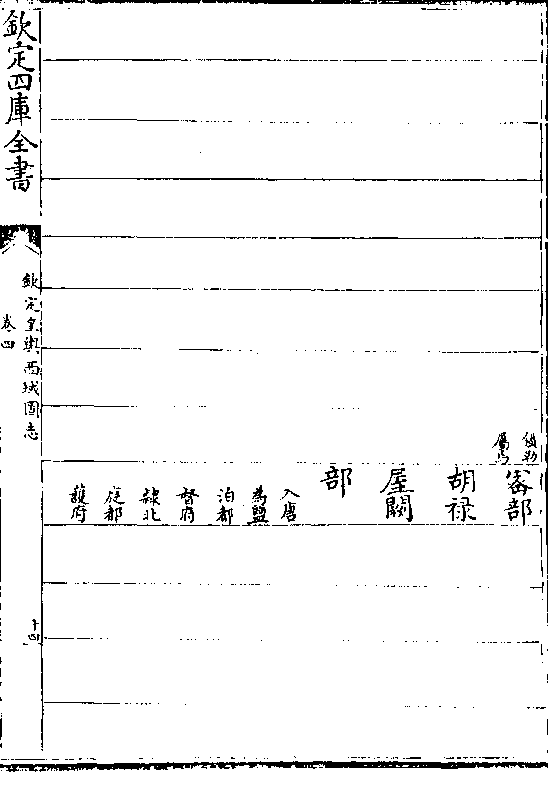 鐵勒
屬焉
密部
胡禄
屋闕
部
入唐
為鹽
泊都
督府
隸北
庭都
護府
欽定四庫全書
欽定皇輿西域圖志
卷四
十四